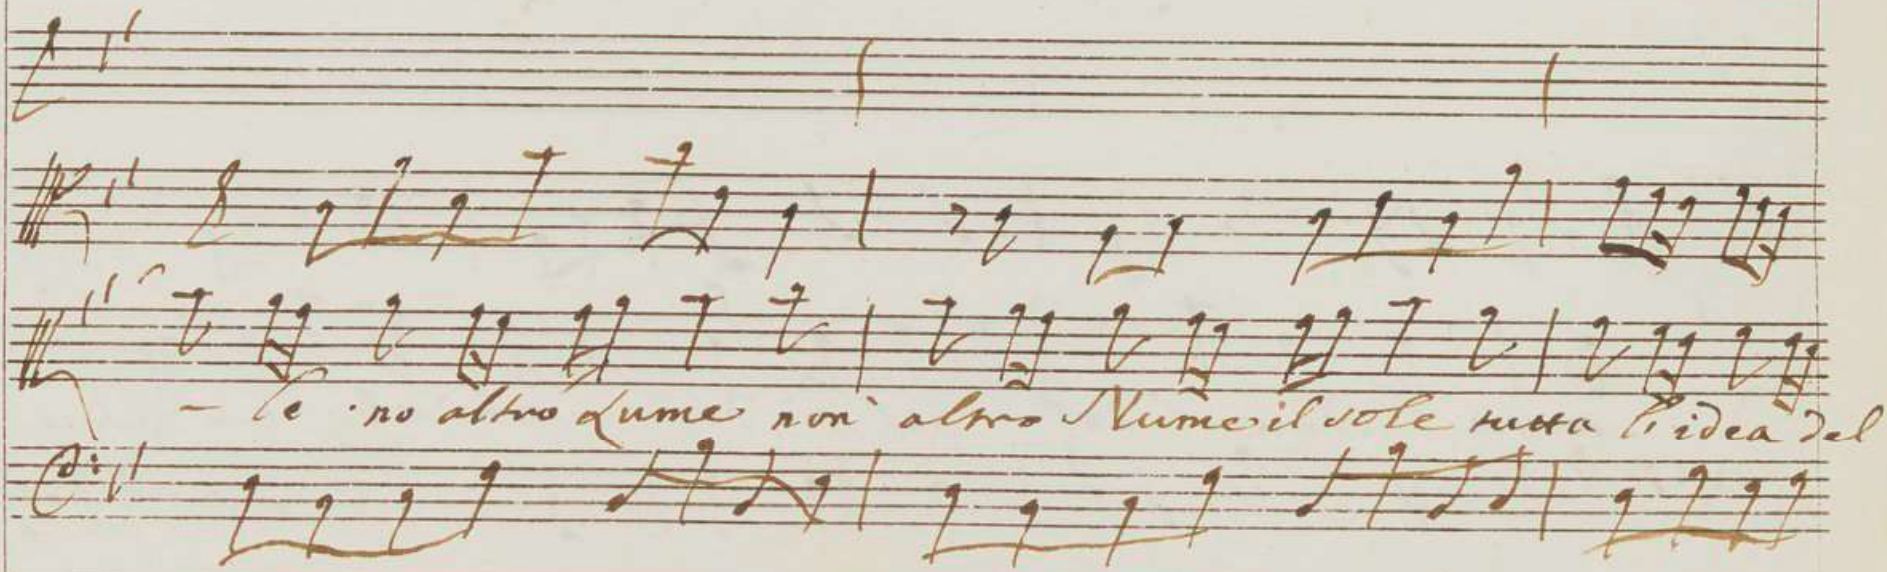 - le no altro Lume non altro Nume il sole tutta l'idea del